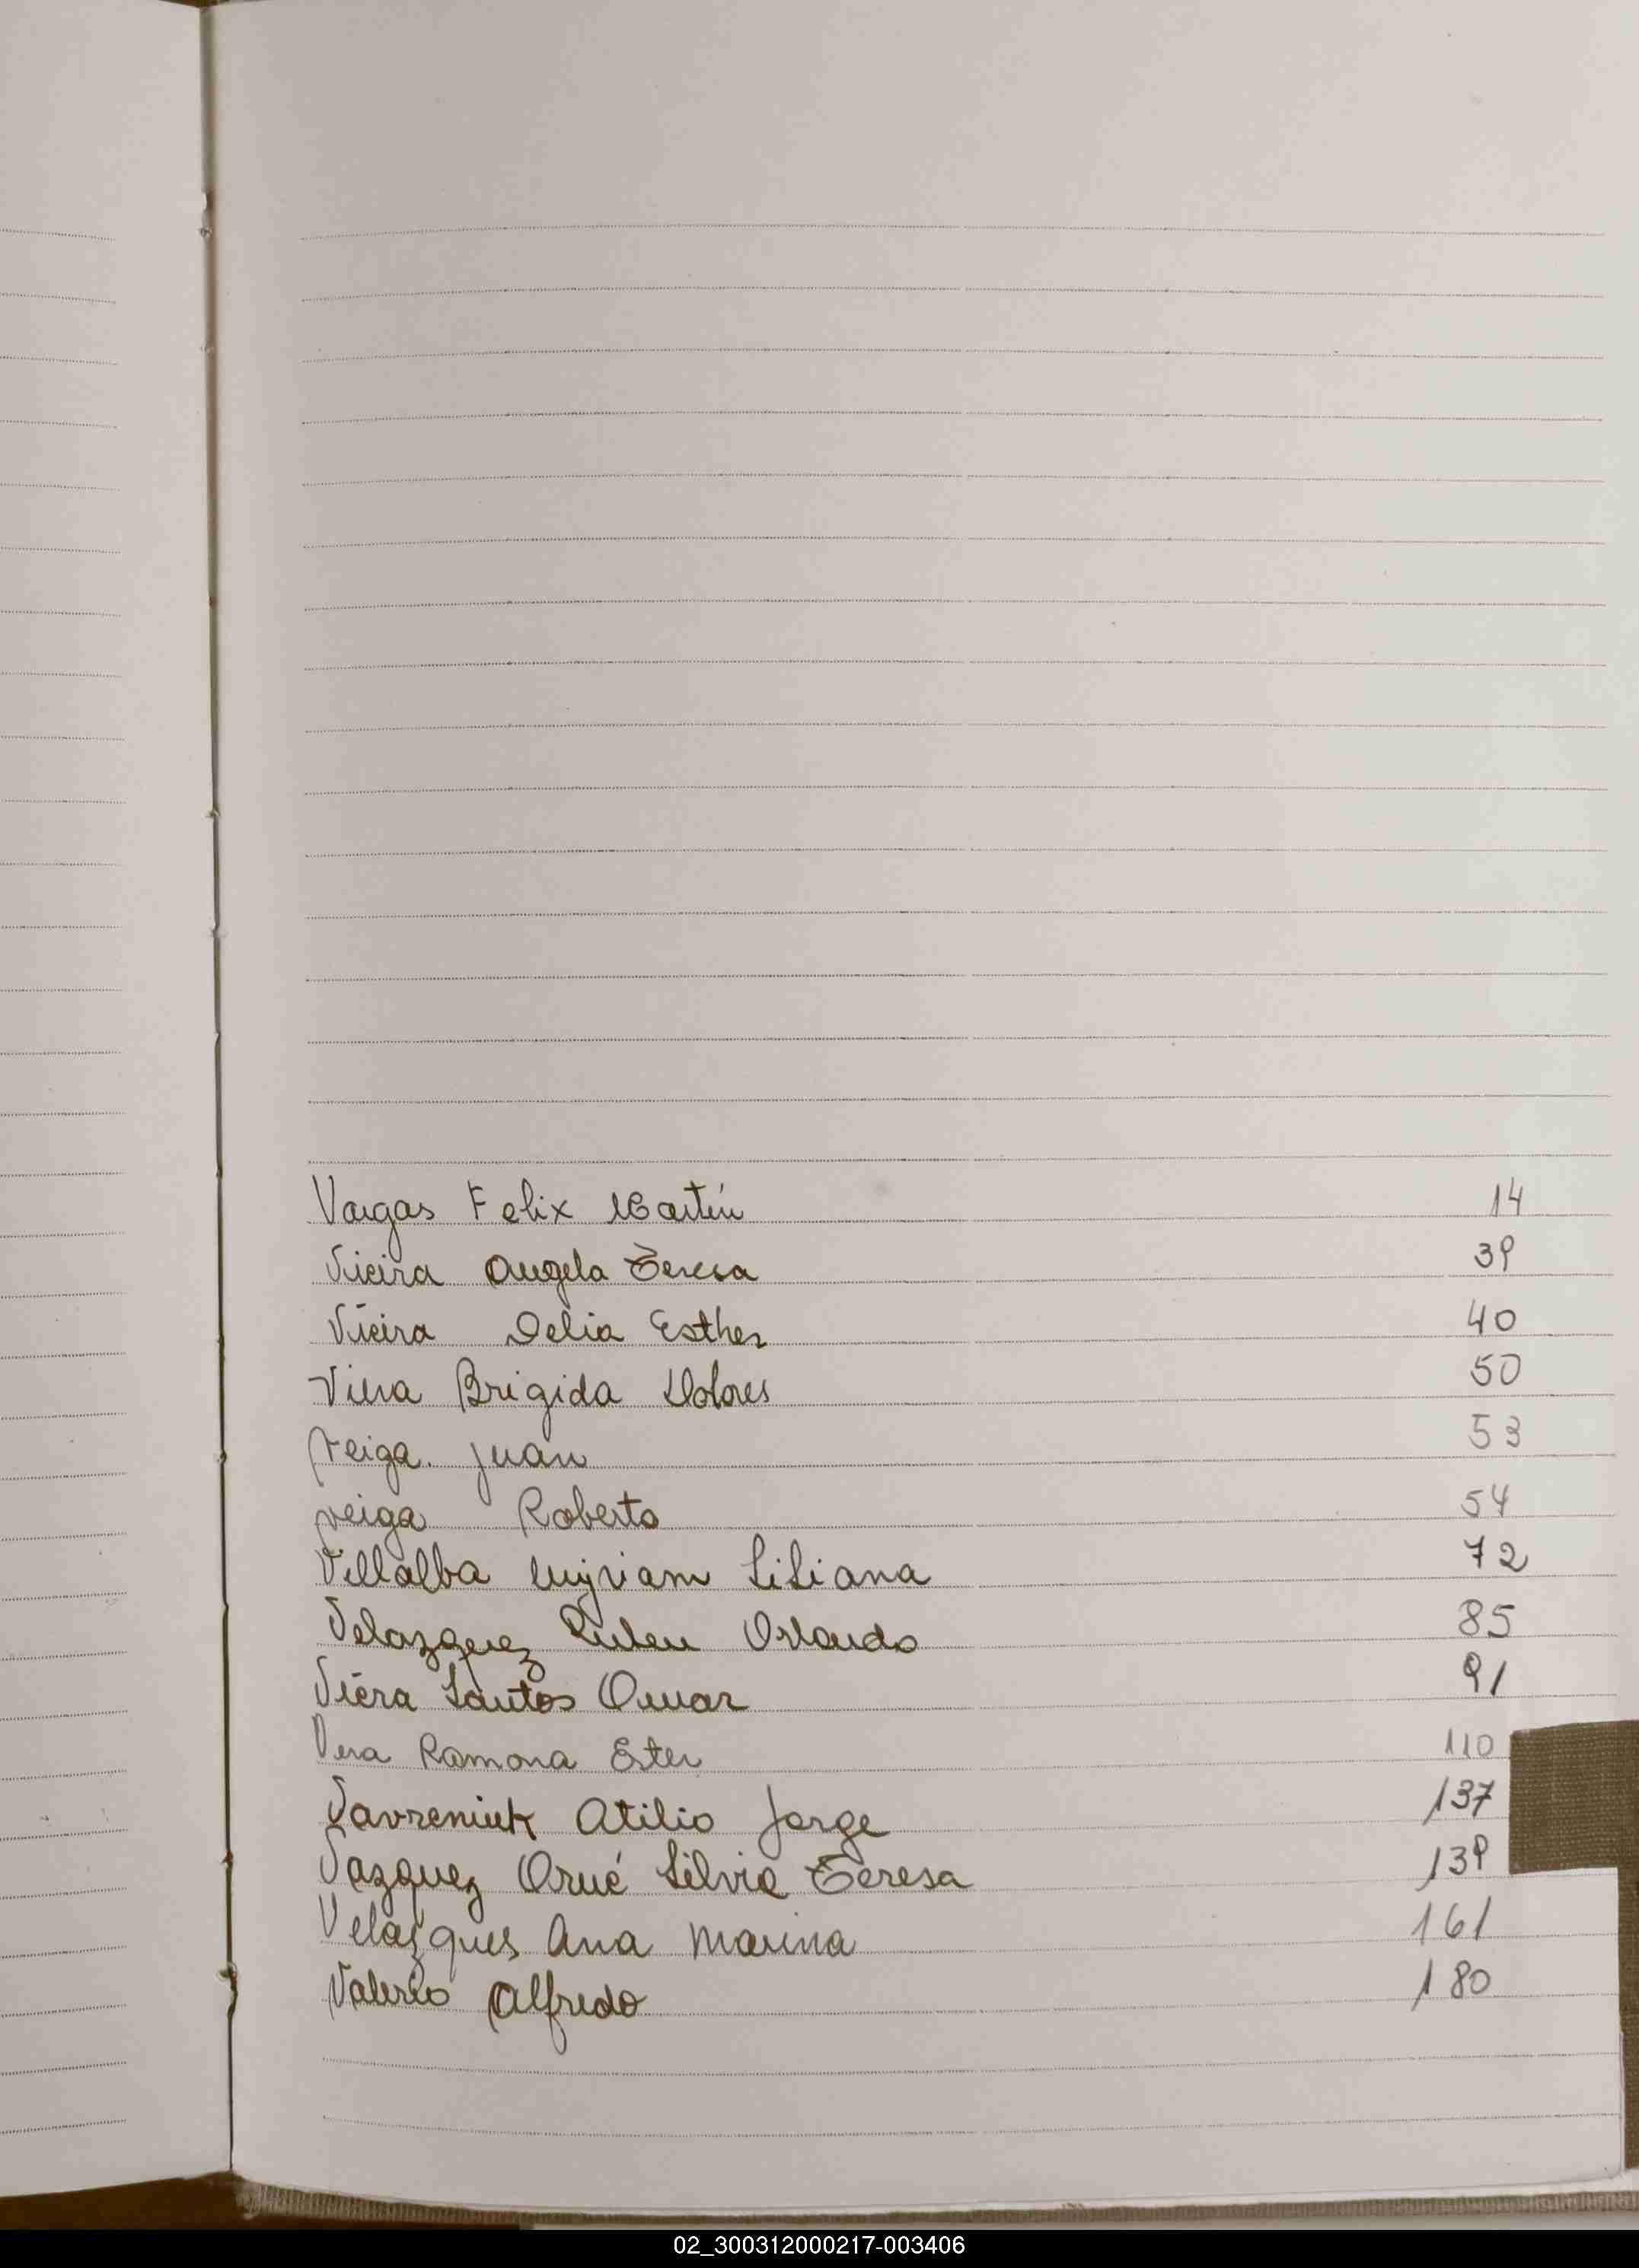 Vargas Felix Martín 14
Vieira Angela Teresa 39
Vieira Delia Esther 40
Viera Brigida Dolores 50
Veiga. Juan 53
veiga Roberto 54
Villalba Myriam Liliana 72
Velazquez Ruben Orlando 85
Viera Santos Omar 91
Vera Ramona Ester 110
Vavreniuk Atilio Jorge 137
Vazquez Orué Silvia Teresa 139
Velazques Ana Marina 161
Valerio Alfredo 180
02_300312000217-003406